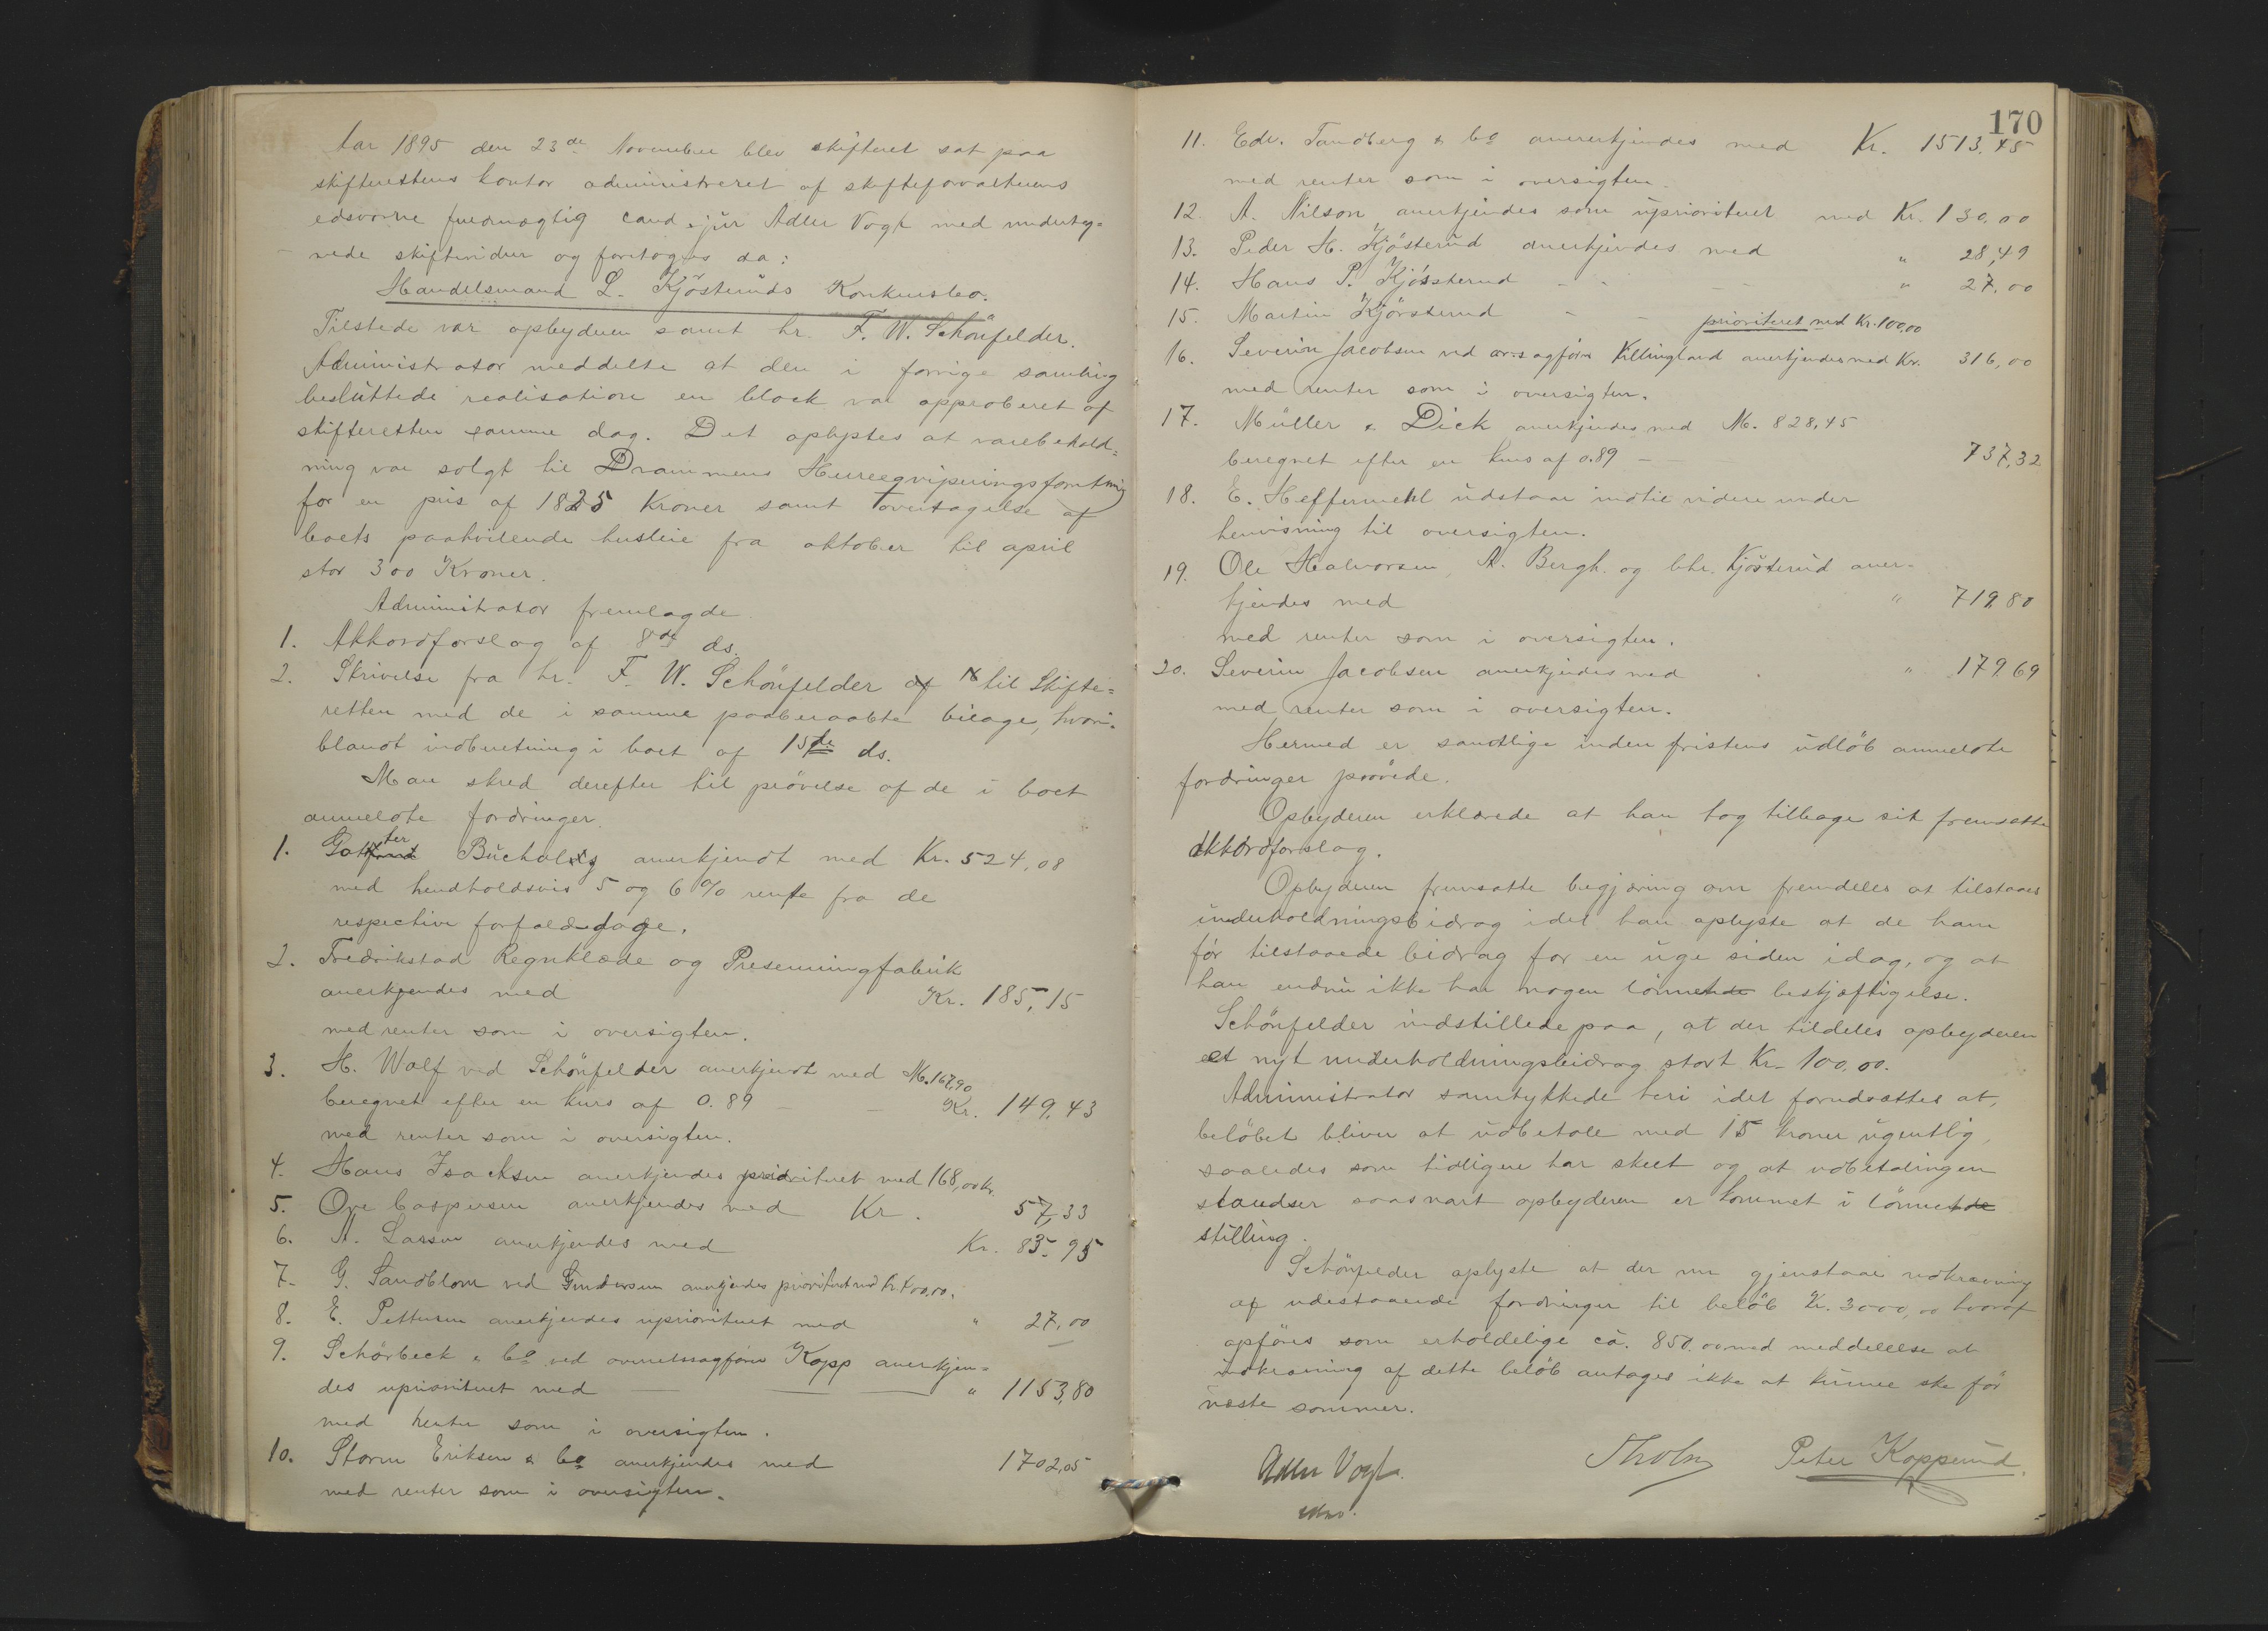 Aar 1895 den 23de November blev skifteret sat paa
skifterettens kontor administreret af skifteforvalterens
edsvorne fuldmægtig cand. jur Adler Vogt med underteg=
nede skiftevidner og foretoges da:
Handelsmand L. Kjösteruds Konkursbo.
Tilstede var opbyderen samt hr. F. W. Schönfelder.
Administrator meddelte at den i forrige samling
besluttede realisation en block var approberet af
skifteretten samme dag. Det oplystes at varebehold=
ning var solgt til Drammens Herreeqviperingsforretning
for en pris af 1825 Kroner samt overtagelse af
boets paahvilende husleie fra oktober til april
stor 300 Kroner.
Administrator fremlagde
1. Akkordforslag af 8de ds.
2. Skrivelse fra hr. F. W. Schönfelder til Skifte=
retten med de i samme paaberaabte bilage, hvori-
blandt indberetning i boet af 15de ds.
Man skred derefter til prövelse af de i boet
anmeldte fordringer.
1. Bucholtz anerkjendt med Kr. 524,08
med hendholdsvis 5 og 6 % rente fra de
respective forfaldsdage.
2. Fredrikstad Regnklæde og Presenningfabrik
anerkjendes med Kr. 185,15
med renter som i oversigten.
3. H. Wolf ved Schönfelder anerkjendt med M. 167,90
beregnet efter en kurs af 0.89 - - Kr. 149,43
med renter som i oversigten.
4. Hans Isacksen anerkjendes prioriteret med 168,00 kr.
5. Ove Caspersen anerkjendes med Kr. 57,33
6. A. Larsen anerkjendes med Kr. 85,95
7. G. Sandblom ved Gundersen anerkjendes prioriteret med kr. 400,00.
8. E. Pettersen anerkjendes uprioriteret med " 27,00
9. Schörbeck & Co ved overretssagförer Kopp anerkjen=
des uprioriteret med " 1153,80
med renter som i oversigten.
10. Storm Eriksen & Co anerkjendes med 1702,05
med renter som i oversigten.
170
11. Edv. Tandberg & Co anerkjendes med Kr. 1513,45
med renter som i oversigten.
12. A. Nilson anerkjendes som uprioriteret med Kr. 130,00
13. Peder H. Kjösterud anerkjendes med " 28,49
14. Hans P. Kjösterud - - - " 27,00
15. Martin Kjörsterud - - prioriteret med Kr. 100,00
16. Severin Jacobsen ved o.r.sagförer Killingland anerkjendes med Kr. 316,00
med renter som i oversigten.
17. Müller & Dick anerkjendes med M. 828,45
beregnet efter en kurs af 0.89 - 737,32
18. E. Heffermehl udstaar indtil videre under
henvisning til oversigten.
19. Ole Halvorsen, A. Bergh. og Chr. Kjösterud aner-
kjendes med " 719,80
med renter som i oversigten.
20. Severin Jacobsen anerkjendes med " 179,69
med renter som i oversigten.
Hermed er samtlige inden fristens udlöb anmeldte
fordringer prövede.
Opbyderen erklærede at han tog tilbage sit fremsatte
akkordforslag.
Opbyderen fremsatte begjæring om fremdeles at tilstaaes
underholdningsbidrag idet han oplyste at de ham
för tilstaaede bidrag for en uge siden idag, og at
han endnu ikke har nogen lönnet beskjæftigelse.
Schönfelder indstillede paa, at der tildeles opbyderen
et nyt underholdningsbidrag stort Kr. 100,00.
Administrator samtykkede heri idet forudsættes at,
belöbet bliver at udbetale med 15 kroner ugentlig,
saaledes som tidligere har skeet og at udbetalingen
standser saasnart opbyderen er kommet i lönnet
stilling.
Schönfelder oplyste at der nu gjenstaar indkrævning
af udestaaende fordringer til belöb Kr. 3000,00 hvoraf
opföres som erholdelige ca. 850.00 med meddelelse at
indkrævning af dette belöb antages ikke at kunne ske för
næste sommer.
Adler Vogt. Peter Kopperud.
edsv.